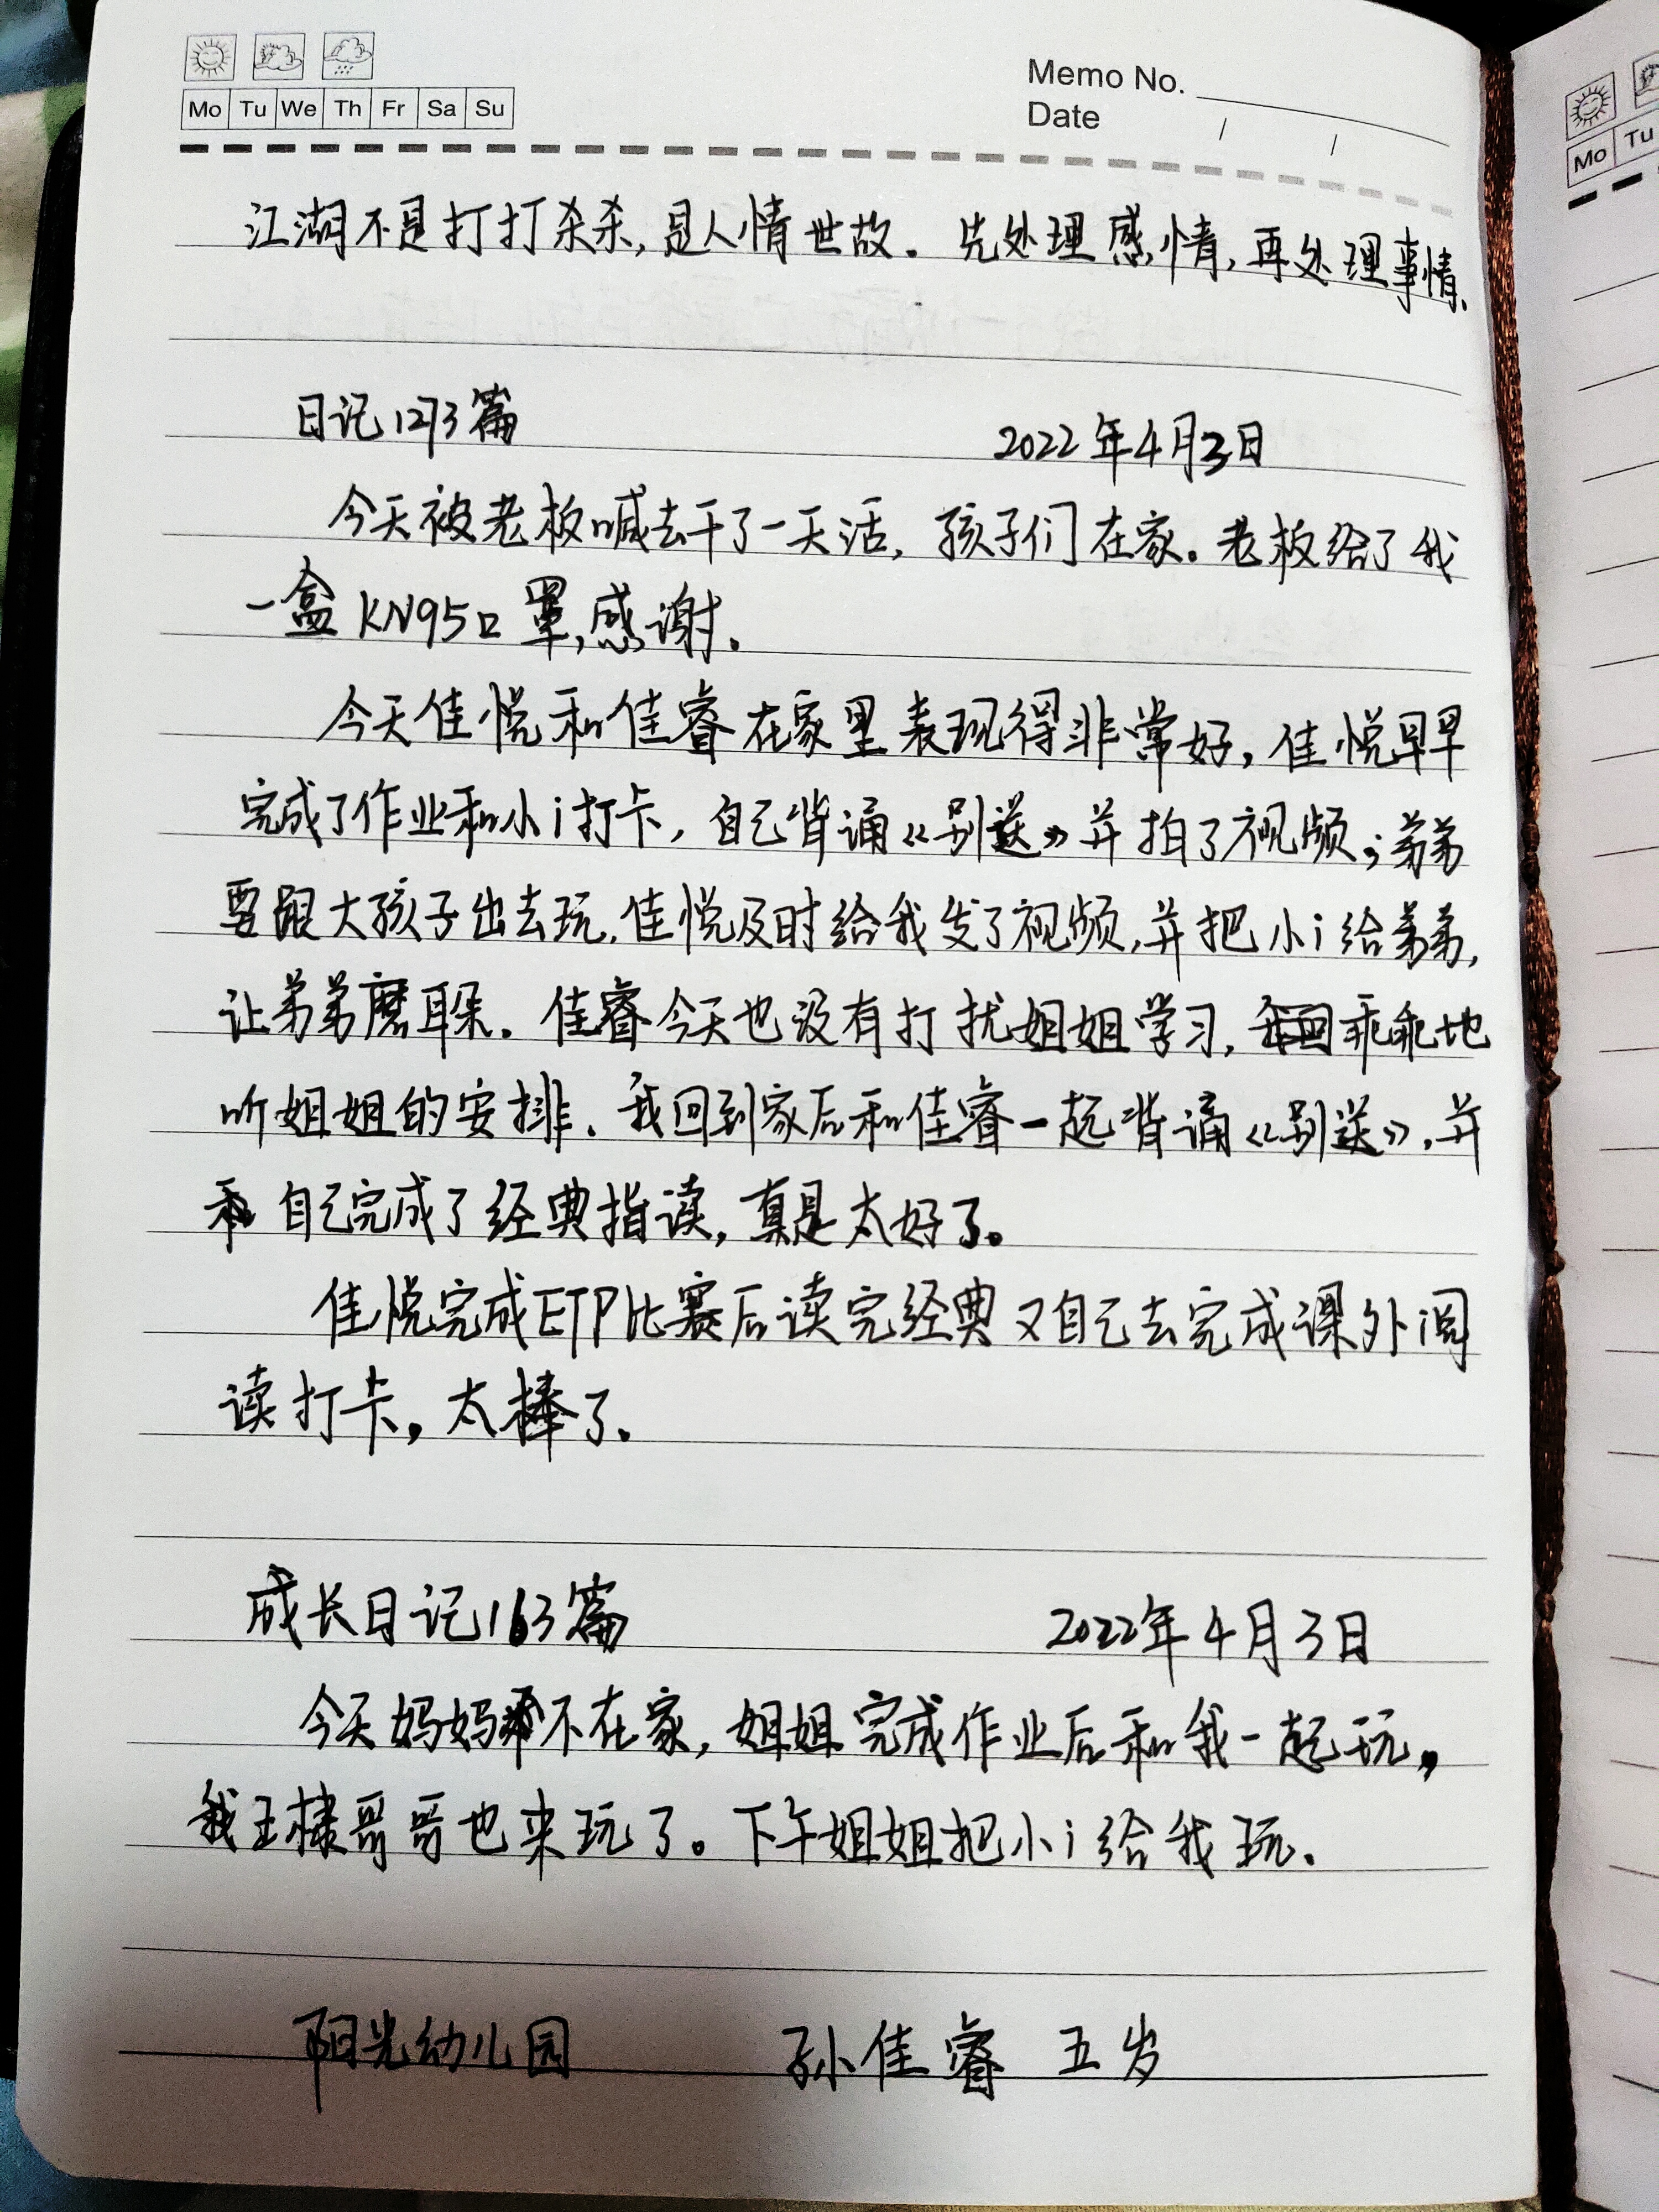 Mo Tu We Th Fr Sa Su
Memo No.
Date / /
江湖不是打打杀杀,是人情世故. 先处理感情,再处理事情、
日记1273篇 2022年4月3日
今天被老板喊去干了一天活, 孩子们在家。老板给了我
一盒KN95口罩,感谢.
今天佳悦和佳睿在家里表现得非常好, 佳悦早早
完成了作业和小i打卡, 自己背诵《别送》并拍了视频;弟弟
要跟大孩子出去玩,佳悦及时给我发了视频,并把小i给弟弟,
让弟弟磨耳朵. 佳睿今天也没有打扰姐姐学习, 乖乖地
听姐姐的安排. 我回到家后和佳睿一起背诵《别送》,并
自己完成了经典指读, 真是太好了。
佳悦完成ETP比赛后读完经典又自己去完成课外阅
读打卡, 太棒了.
成长日记163篇 2022年4月3日
今天妈妈不在家, 姐姐完成作业后和我一起玩,
我王棣哥哥也来玩了。下午姐姐把小i给我玩.
阳光幼儿园 孙佳睿 五岁
Mo Tu